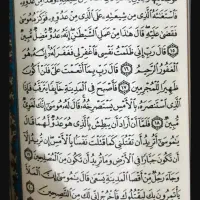 فَٱسْتَغَٰثَهُ ٱلَّذِى مِن شِيعَتِهِۦ عَلَى ٱلَّذِى مِنْ عَدُوِّهِۦ فَوَكَزَهُۥ مُوسَىٰ
فَقَضَىٰ عَلَيْهِ قَالَ هَٰذَا مِنْ عَمَلِ ٱلشَّيْطَٰنِ إِنَّهُۥ عَدُوٌّ مُّضِلٌّ مُّبِينٌ
١٥ قَالَ رَبِّ إِنِّى ظَلَمْتُ نَفْسِى فَٱغْفِرْ لِى فَغَفَرَ لَهُۥٓ إِنَّهُۥ هُوَ
ٱلْغَفُورُ ٱلرَّحِيمُ ١٦ قَالَ رَبِّ بِمَآ أَنْعَمْتَ عَلَىَّ فَلَنْ أَكُونَ
ظَهِيرًا لِّلْمُجْرِمِينَ ١٧ فَأَصْبَحَ فِى ٱلْمَدِينَةِ خَآئِفًا يَتَرَقَّبُ فَإِذَا
ٱلَّذِى ٱسْتَنصَرَهُۥ بِٱلْأَمْسِ يَسْتَصْرِخُهُۥ قَالَ لَهُۥ مُوسَىٰٓ إِنَّكَ لَغَوِىٌّ
مُّبِينٌ ١٨ فَلَمَّآ أَنْ أَرَادَ أَن يَبْطِشَ بِٱلَّذِى هُوَ عَدُوٌّ لَّهُمَا قَالَ
يَٰمُوسَىٰٓ أَتُرِيدُ أَن تَقْتُلَنِى كَمَا قَتَلْتَ نَفْسًۢا بِٱلْأَمْسِ إِن تُرِيدُ إِلَّآ
أَن تَكُونَ جَبَّارًا فِى ٱلْأَرْضِ وَمَا تُرِيدُ أَن تَكُونَ مِنَ ٱلْمُصْلِحِينَ ١٩
وَجَآءَ رَجُلٌ مِّنْ أَقْصَا ٱلْمَدِينَةِ يَسْعَىٰ قَالَ يَٰمُوسَىٰٓ إِنَّ ٱلْمَلَأَ
يَأْتَمِرُونَ بِكَ لِيَقْتُلُوكَ فَٱخْرُجْ إِنِّى لَكَ مِنَ ٱلنَّٰصِحِينَ